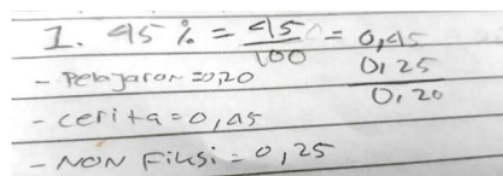 1. 45 % = 45/100 = 0,45
0,25
- Pelajaran = 0,20
0,20
- cerita = 0,45
- NON Fiksi = 0,25